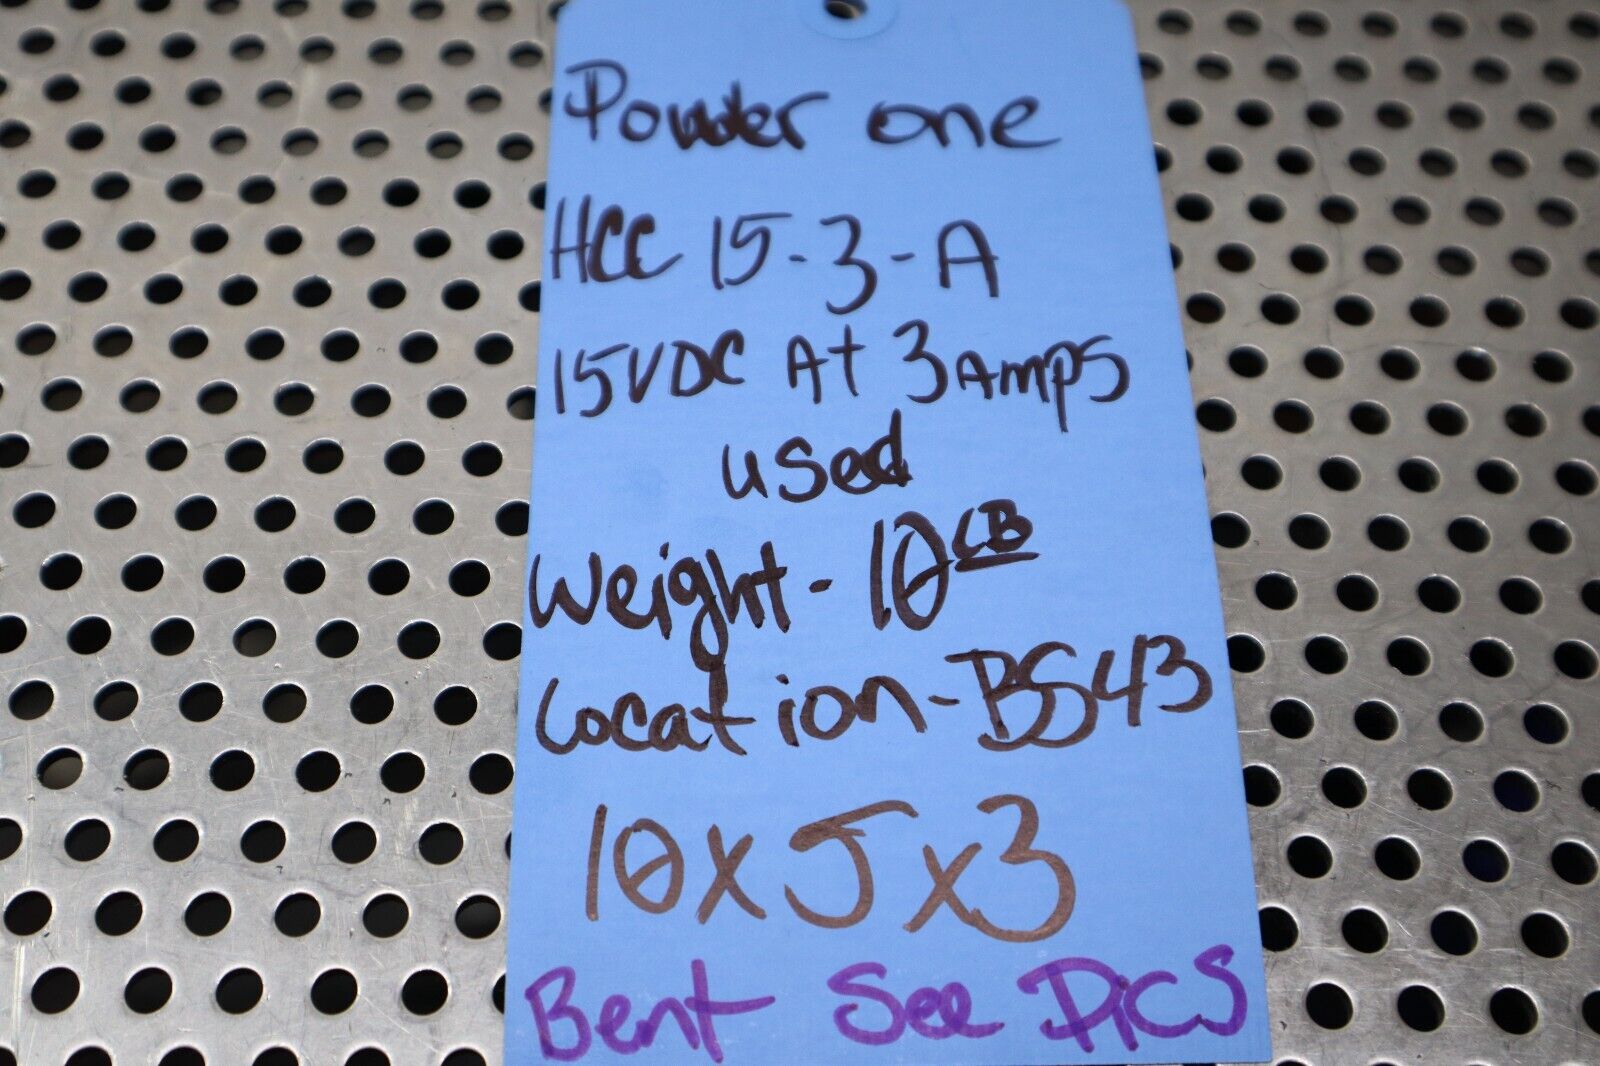 Powder one
HCC 15-3-A
15VDC At 3 Amps
used
Weight - 10 LB
Location - BS43
10 x 5 x 3
Bent See Pics